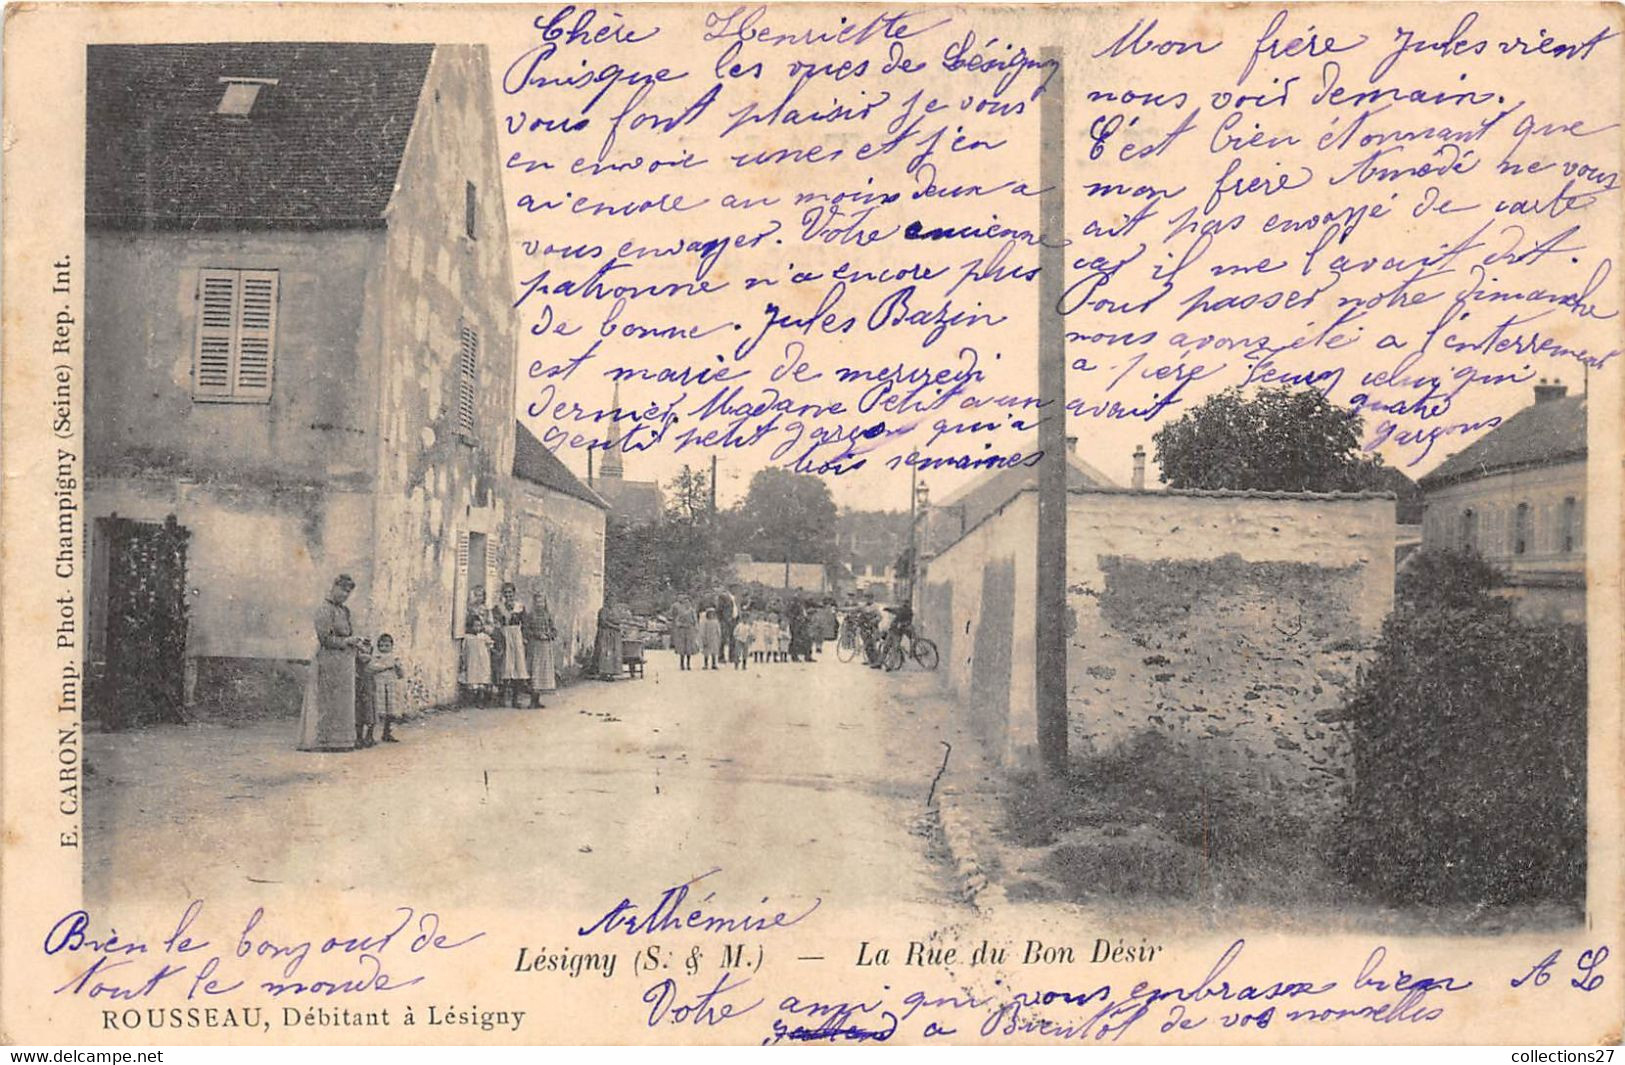 Chère Henriette
Puisque les vues de Lésigny
vous font plaisir je vous
en envoie une et j'en
ai encore au moins deux a
vous envoyer. Votre ancienne
patronne n'a encore plus
de bonne. Jules Bazin
est marie de mercredi
dernier. Madame Petit a un
gentil petit garçon qui a
trois semaines
Mon frère Jules vient
nous voir demain.
C'est bien étonnant que
mon frère Amédé ne vous
ait pas envoyé de carte
car il me l'avait dit.
Pour passer notre dimanche
nous avons été a l'enterrement
a père celui qui
avait quatre
garçons
E. CARON, Imp. Phot. Champigny (Seine) Rep. Int.
Bien le bonjour de
tout le monde
Arthémise
Lésigny (S. & M.) — La Rue du Bon Désir
ROUSSEAU, Débitant à Lésigny
Votre ami qui vous embrasse bien A L
a Bientôt de vos nouvelles
collections27